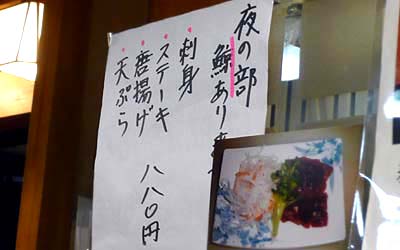 夜の部
鯨あり
刺身
ステーキ
唐揚げ
天ぷら
八八〇円